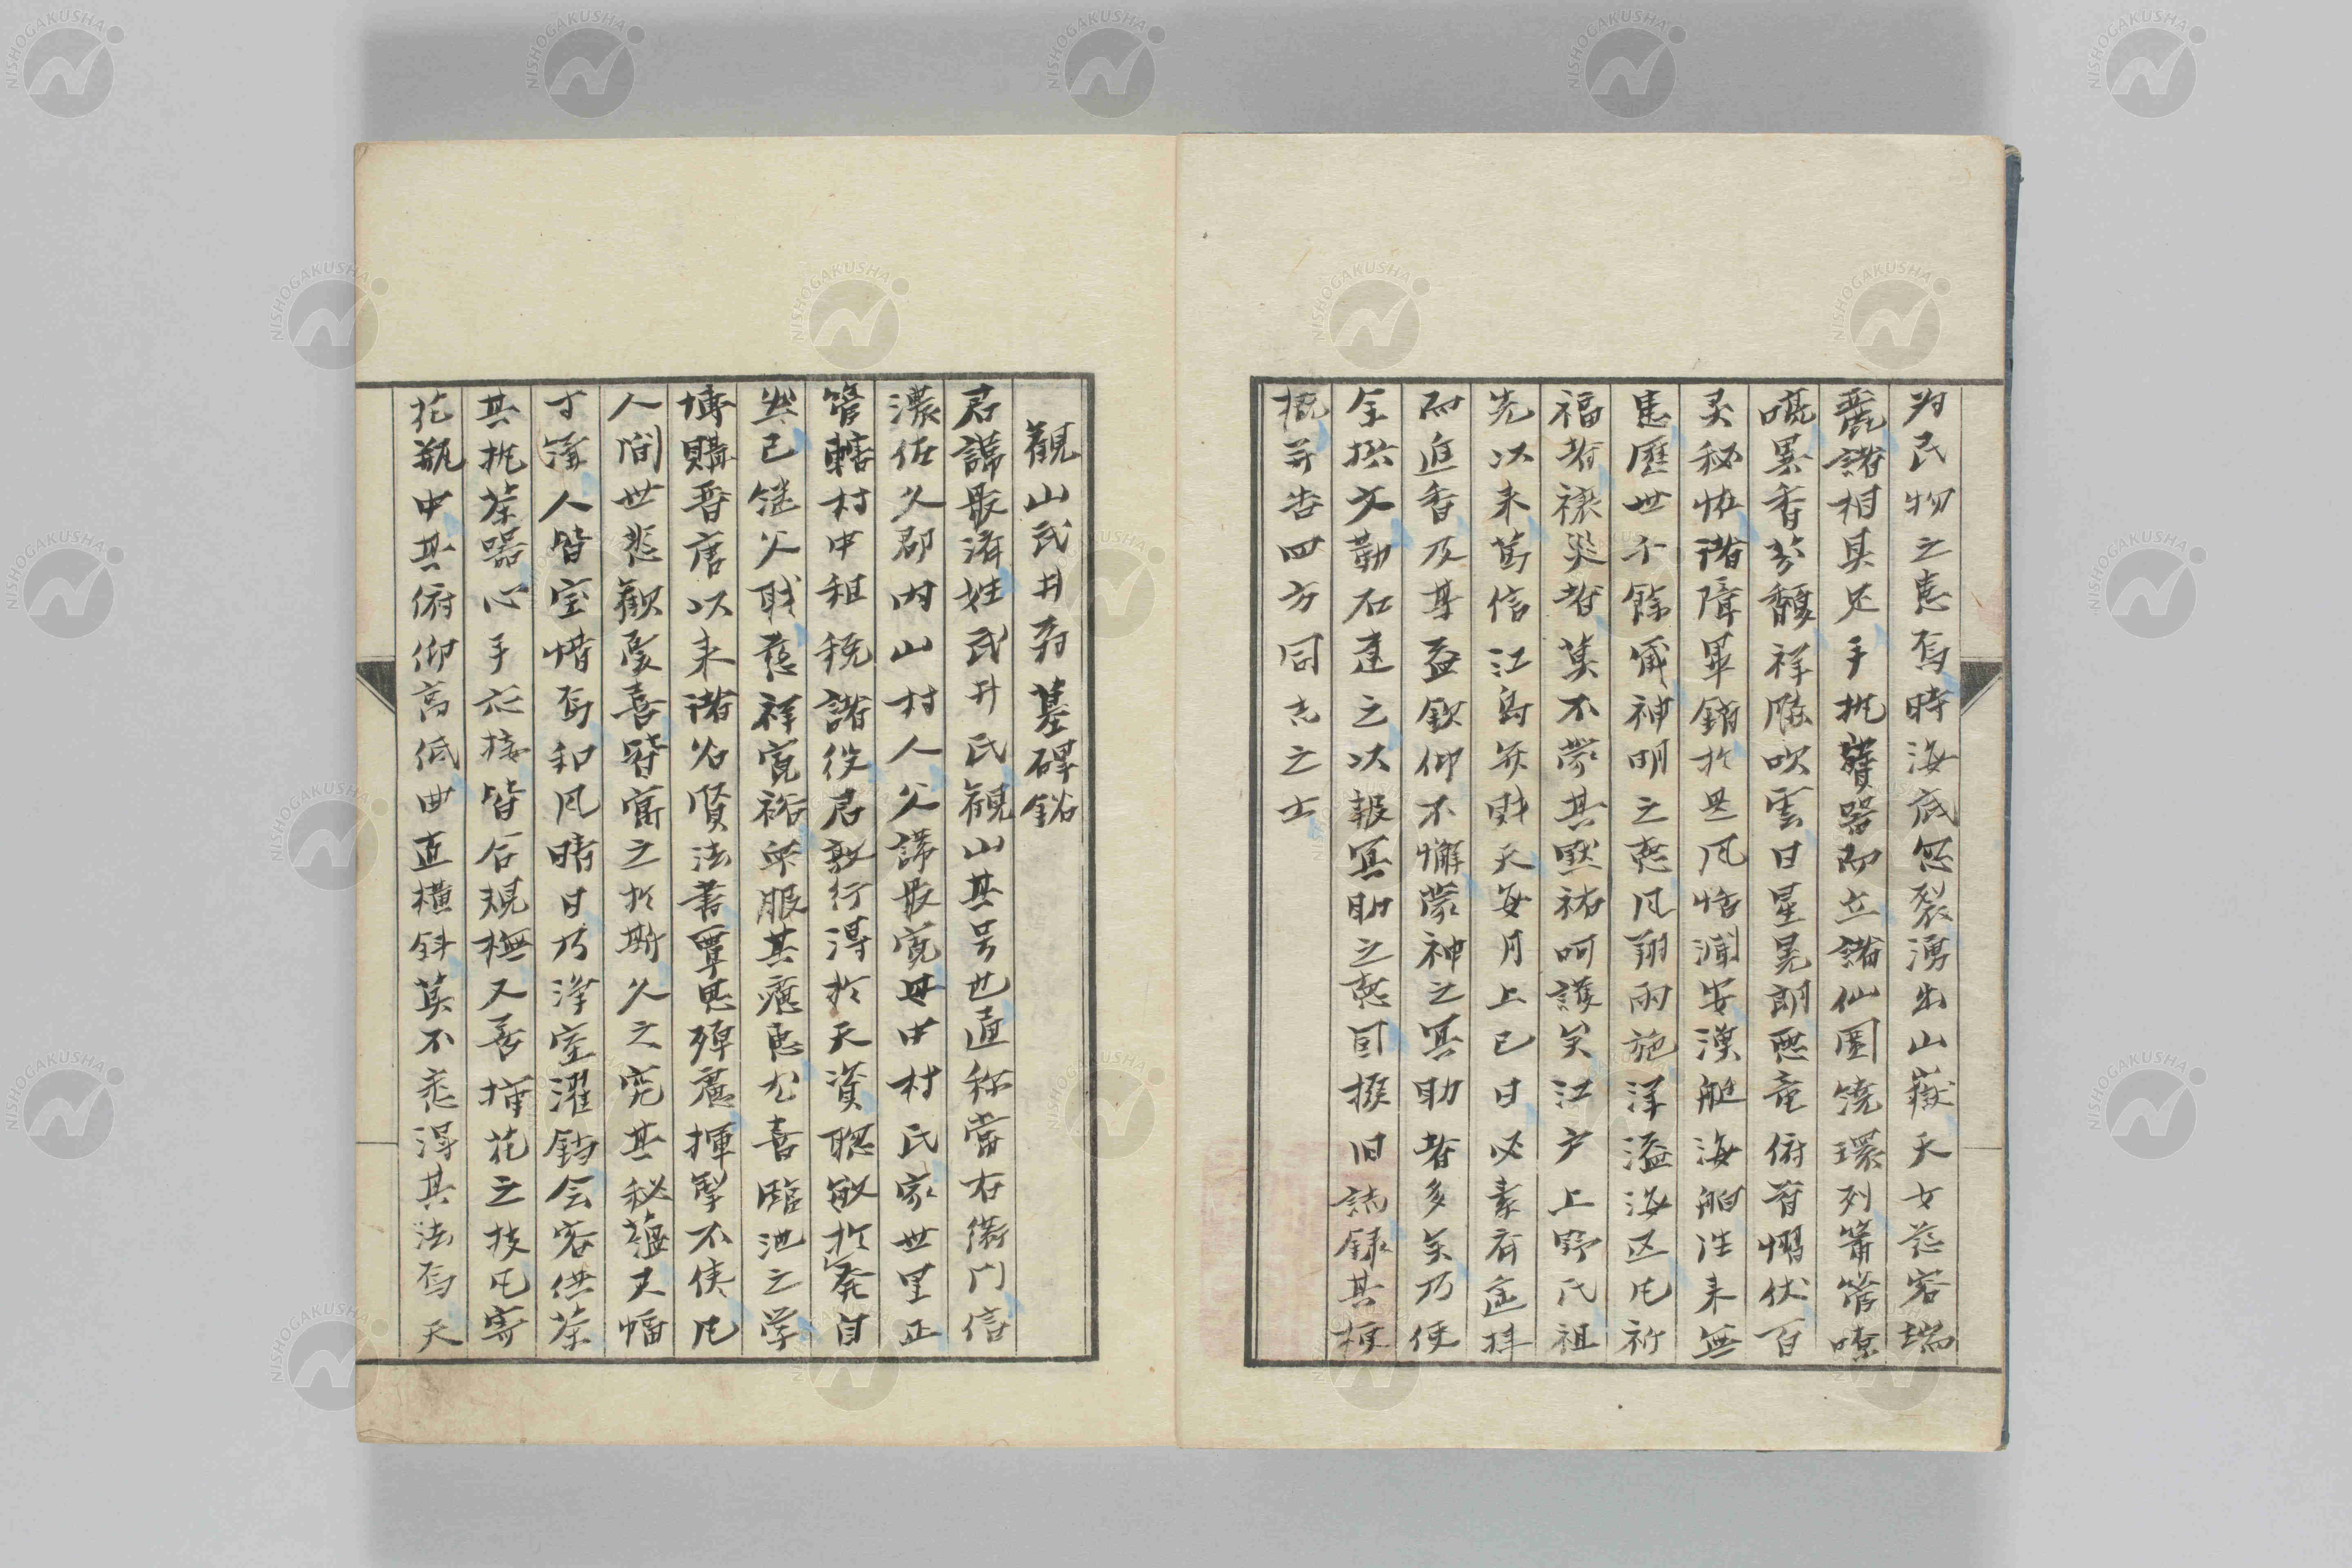 為民物之患焉時海底忽裂湧出山嶽天女慈容瑞
麗諸相具足手執寶器而立諸仙圍繞環列簫管嘹
嘅異香芬馥祥颷吹雲日星晃朗悪竜俯首慴伏百
灵秘怪諸障畢銷於是風恬濤安漢艇海舶往来無
患歴世千餘歳神明之恵風翔雨施洋溢海区凡祈
福者禳災者莫不蒙其默祐呵護矣江戸上野氏祖
先以来篤信江島弁財天毎月上巳日必素斎盛拝
而進香及某益欽仰不懈蒙神之冥助者多矣乃使
余撰文勒石建之以報冥助之恵因據旧誌録其梗
概并告四方同志之士
観山武井翁墓碑銘
君諱最済姓武井氏観山其号也通称常右衛門信
濃佐久郡内山村人父諱最寛母中村氏家世里正
管轄村中租税諸役君敦行得於天資聡敏於発自
然已継父職慈祥寛裕衆服其徳恵尤喜臨池之学
博購晋唐以来諸名賢法書覃思殫慮揮掣不倦凡
人間世悲歓憂喜皆寓之於斯久之究其秘薀丈幅
寸箋人皆宝惜焉和風晴日乃浄室濯鋳会客供茶
其執茶器心手応接皆合規橅又善挿花之技凡寄
花瓶中其俯仰高低曲直横斜莫不悉得其法焉天